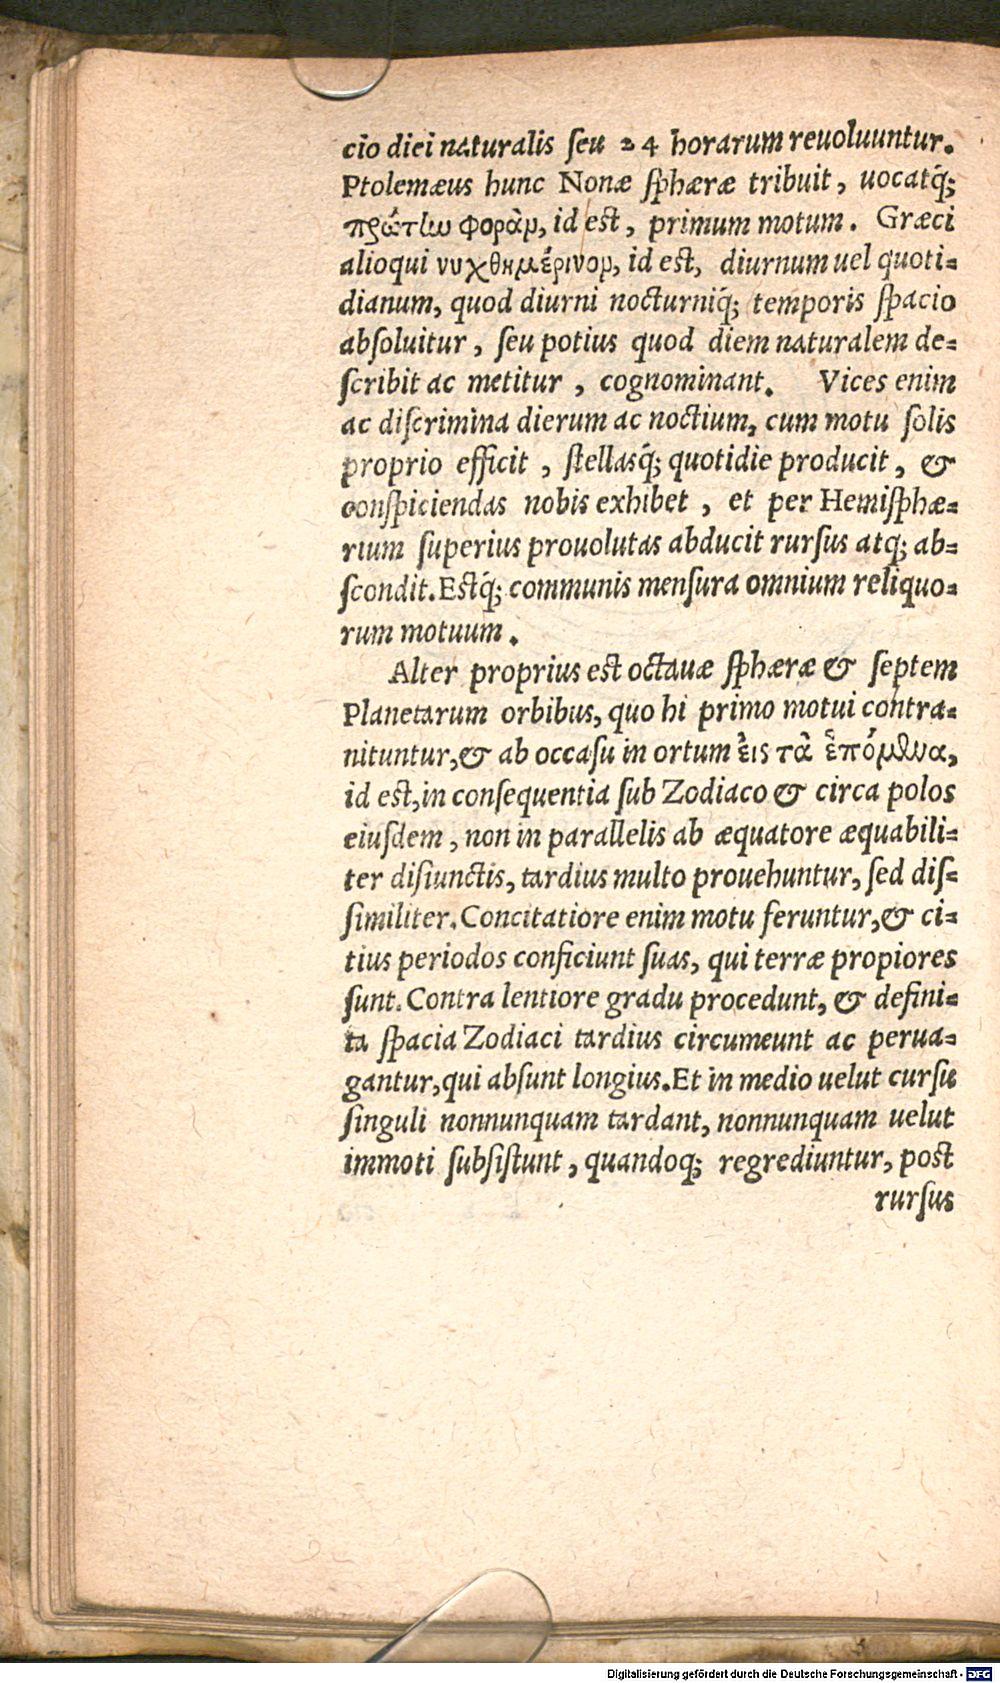 cio diei naturalis ſeu 24 horarum reuoluuntur.
Ptolemæus hunc Nonæ ſphæræ tribuit, uocatq́;
πρώτην φορὰν, id eſt, primum motum. Græci
alioqui νυχθημέρινον, id eſt, diurnum uel quoti=
dianum, quod diurni nocturniq́; temporis ſpacio
abſoluitur, ſeu potius quod diem naturalem de=
ſcribit ac metitur, cognominant. Vices enim
ac diſcrimina dierum ac noctium, cum motu ſolis
proprio efficit, ſtellasq́; quotidie producit, &
conſpiciendas nobis exhibet, et per Hemiſphæ=
rium ſuperius prouolutas abducit rurſus atq; ab=
ſcondit. Eſtq́; communis menſura omnium reliquo=
rum motuum.
Alter proprius eſt octauæ ſphæræ & ſeptem
Planetarum orbibus, quo hi primo motui contra=
nituntur, & ab occaſu in ortum ἐις τὰ ἑπόμενα,
id eſt, in conſequentia ſub Zodiaco & circa polos
eiuſdem, non in parallelis ab æquatore æquabili=
ter diſiunctis, tardius multo prouehuntur, ſed diſ=
ſimiliter. Concitatiore enim motu feruntur, & ci=
tius periodos conficiunt ſuas, qui terræ propiores
ſunt. Contra lentiore gradu procedunt, & defini=
ta ſpacia Zodiaci tardius circumeunt ac perua=
gantur, qui abſunt longius. Et in medio uelut curſu
ſinguli nonnunquam tardant, nonnunquam uelut
immoti ſubſiſtunt, quandoq; regrediuntur, poſt
rurſus
Digitalisierung gefördert durch die Deutsche Forschungsgemeinschaft - DFG